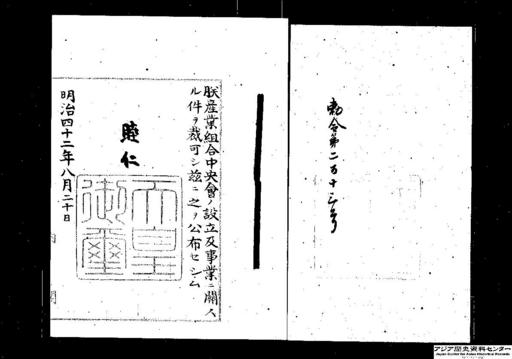 勅令第二百十三号
朕産業組合中央會ノ設立及事業ニ關ス
ル件ヲ裁可シ茲ニ之ヲ公布セシム
睦仁
天皇
御璽
明治四十二年八月二十日
内閣
アジア歴史資料センター
Japan Center for Asian Historical Records